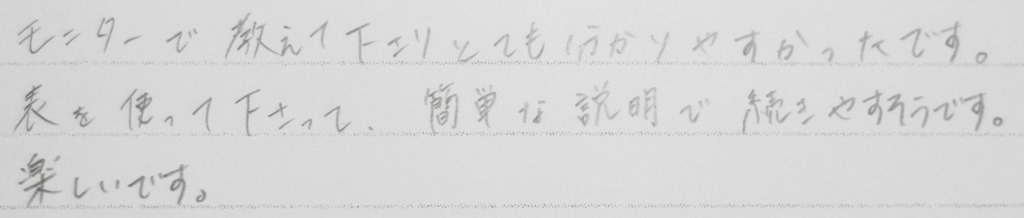 モニターで教えて下さりとても分かりやすかったです。
表を使って下さって、簡単な説明で続きやすそうです。
楽しいです。